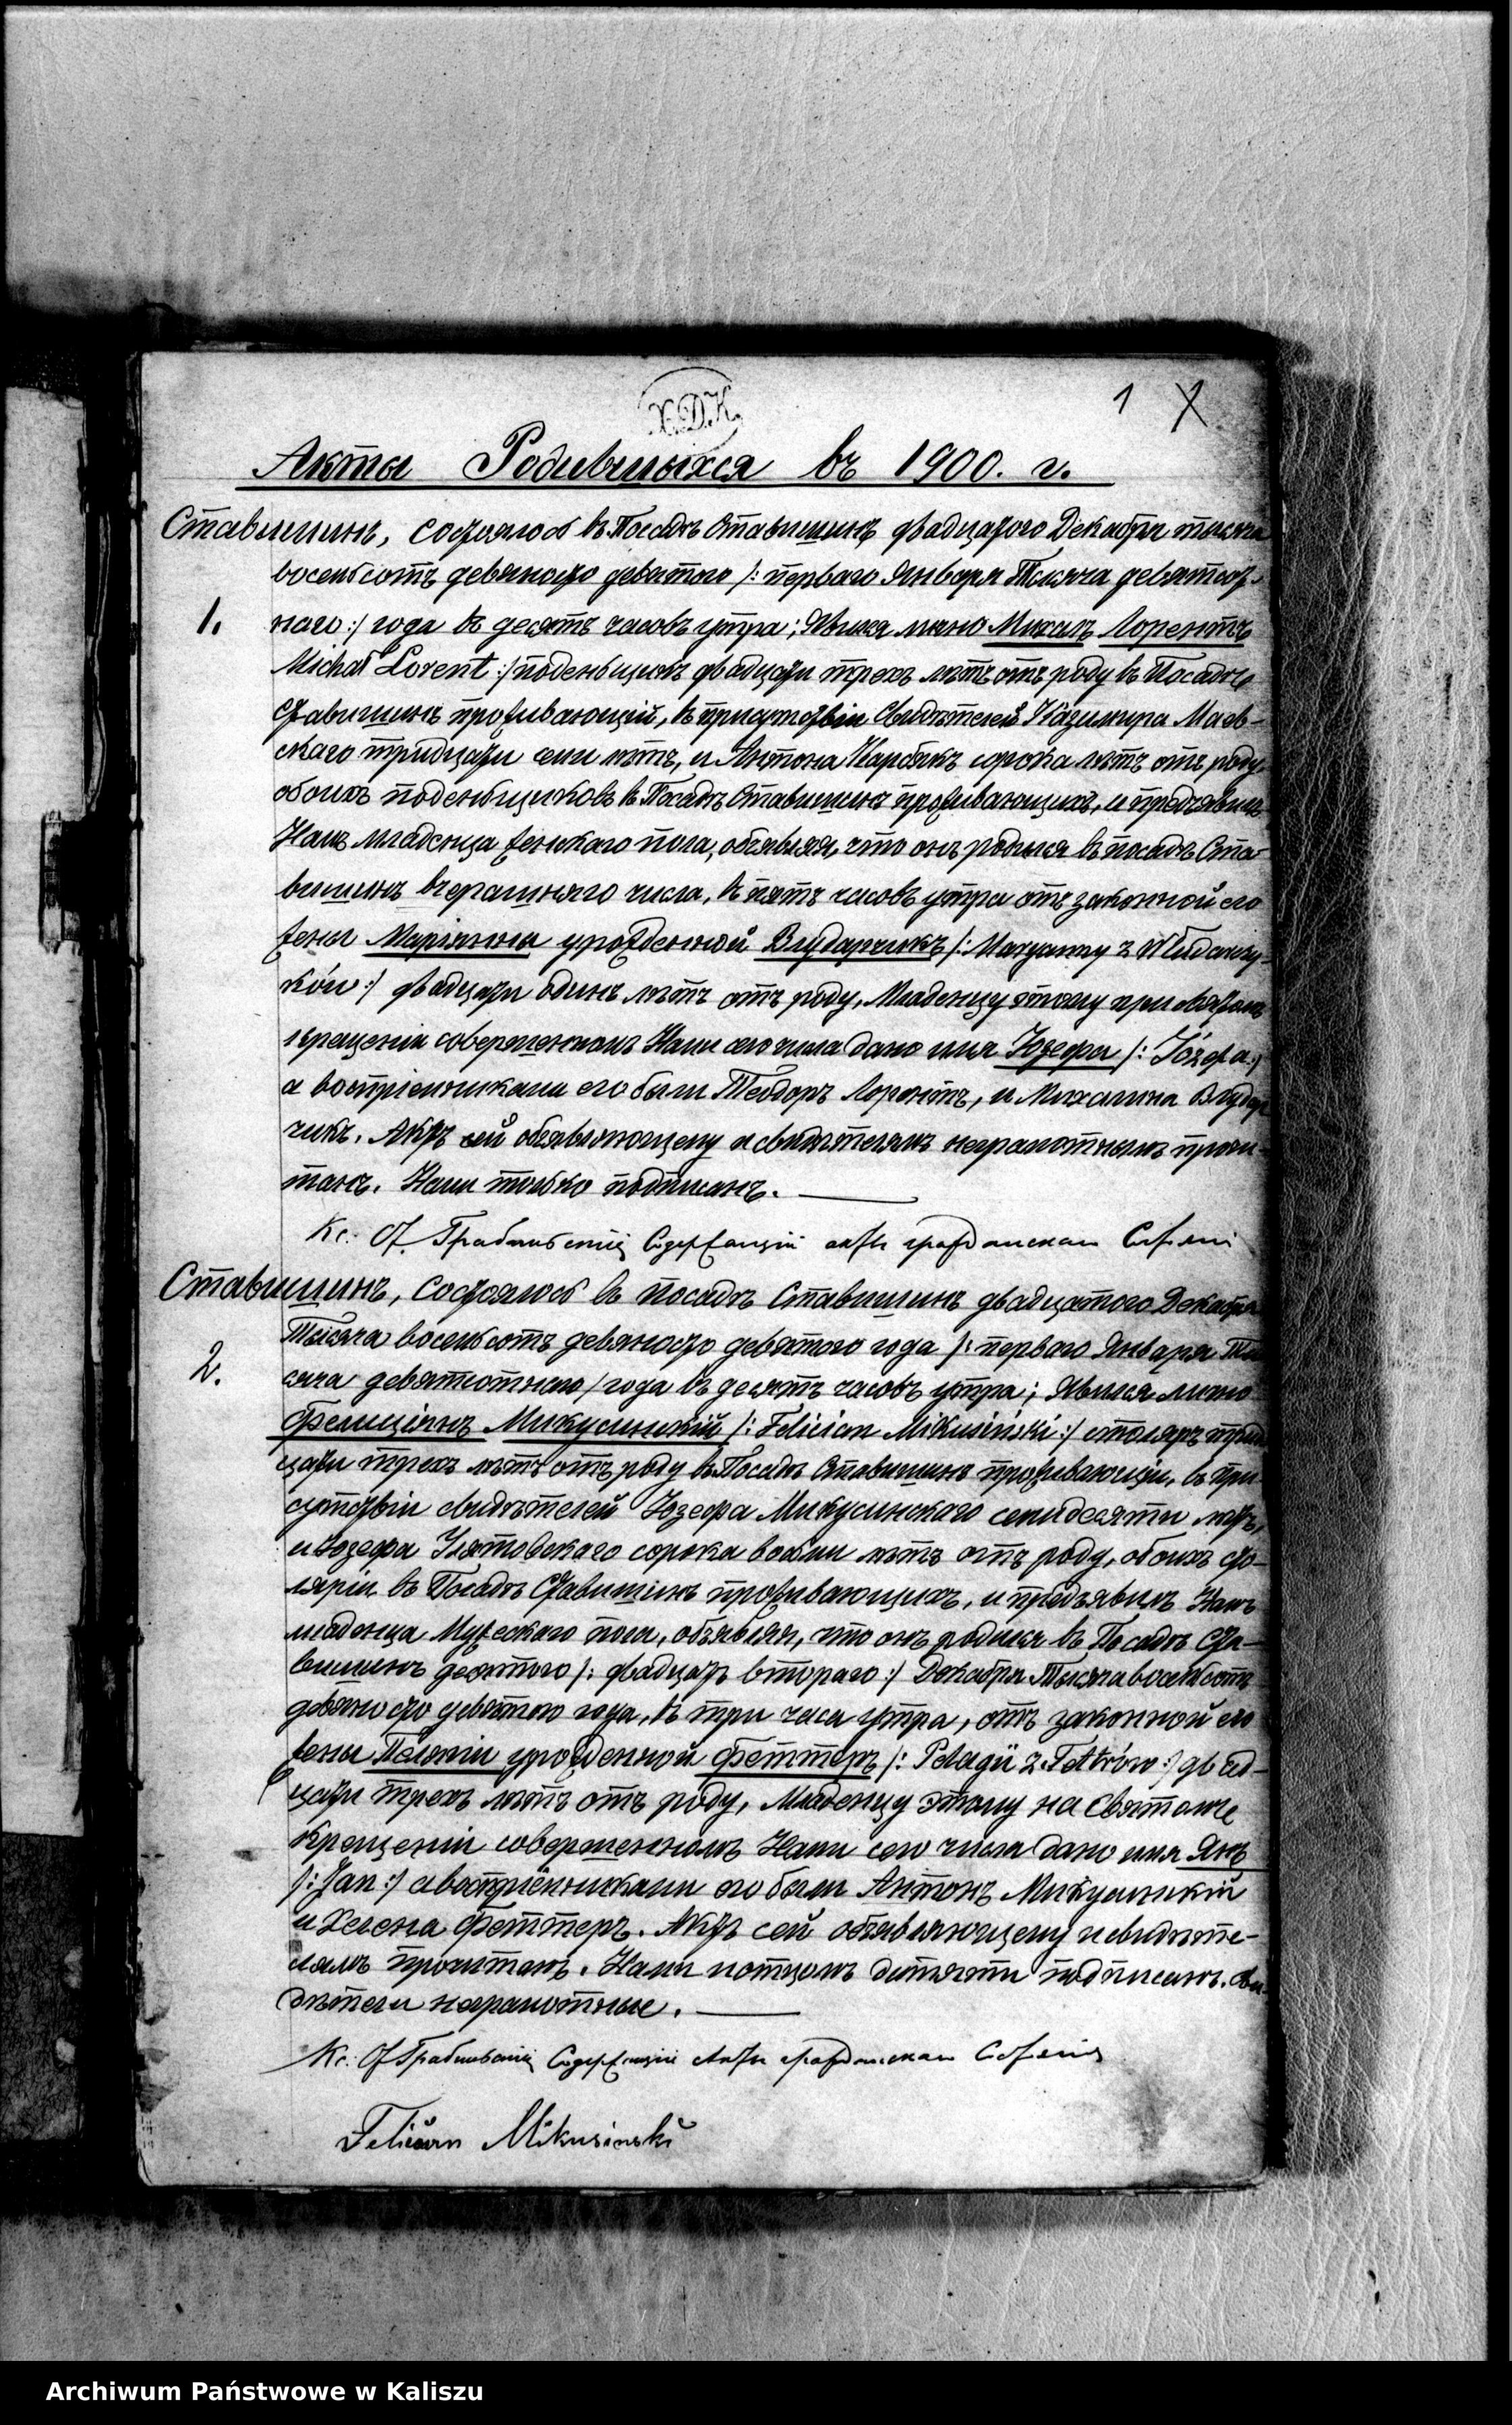 Х.Д.К.
1 X
Акты Родившыхся въ 1900. г.
Ставишинъ, состоялось въ Посадѣ Ставишинѣ двадцатого Декабря тысяча
восемьсотъ девяносто девятого /: перваго Января Тысяча девятьсот-
1. наго :/ года въ десять часовъ утра; Явился лично Михалъ Лорентъ
Michał Lorent :/ поденьщикъ двадцати трехъ лѣтъ отъ роду въ Посадѣ
Ставишинѣ проживающій, въ присутствіи Свидѣтелей Казимира Маев-
скаго тридцати семи лѣтъ, и Антона Карбякъ сорока лѣтъ отъ роду,
обоихъ поденьщиковъ въ Посадѣ Ставишинѣ проживающихъ, и предъявилъ
Намъ младенца женскаго пола, объявляя, что онъ родился въ посадѣ Ста-
вишинѣ вчерашняго числа, въ пять часовъ утра отъ законной его
жены Маріянна урожденной Влударчикъ /: Maryanny z Włudarczy-
ków :/ двадцати одинъ лѣтъ отъ роду, Младенцу этому при святомъ
крещеніи совершенномъ Нами сего числа дано имя Юзефа /: Józefa :/
а воспріемниками его были Теодоръ Лорентъ, и Михалина Влудар
чикъ. Актъ сей объявляющему и свидѣтелямъ неграмотнымъ прочи-
танъ. Нами только подписанъ.
Кс: Содержащій акты гражданскаго Состоянія
Ставишинъ, Состоялось въ посадѣ Ставишинѣ двадцатого Декабря
Тысяча восемьсотъ девяносто девятого года /: перваго Января Ты
2. сяча девятисотнаго / года въ десять часовъ утра; Явился лично
Фелиціянъ Микусинскій /: Felician Mikusiński :/ столяръ трид
цати трехъ лѣтъ отъ роду въ Посадѣ Ставишинѣ проживающій, въ при-
сутствіи свидѣтелей Юзефа Микусинскаго семидесяти лѣтъ,
и Юзефа сорока восьми лѣтъ отъ роду, обоихъ сто-
ляріи въ Посадѣ Ставишинѣ проживающихъ, и предъявилъ Намъ
младенца Мужескаго пола, объявляя, что онъ родился въ Посадѣ Ста-
вишинѣ десятого /: двадцать втораго :/ Декабря Тысяча восемьсотъ
девяносто девятого года, въ три часа утра, отъ законной его
жены Пелягіи урожденной Феттеръ /: Pelagii z Fetrów :/ двад-
цати трехъ лѣтъ отъ роду, Младенцу этому на Святомъ
Крещеніи совершенномъ Нами сего числа дано имя Янъ
/: Jan :/ а воспріемниками его были Антонъ Микусинскій
и Хелена Феттеръ. Актъ сей объявляющему и свидѣте-
лямъ прочитанъ. Нами и отцомъ дитяти подписанъ. Сви
дѣтели неграмотные.
Кс: Содержащій Акты гражданскаго Состоянія
Felician Mikusinski
Archiwum Państwowe w Kaliszu